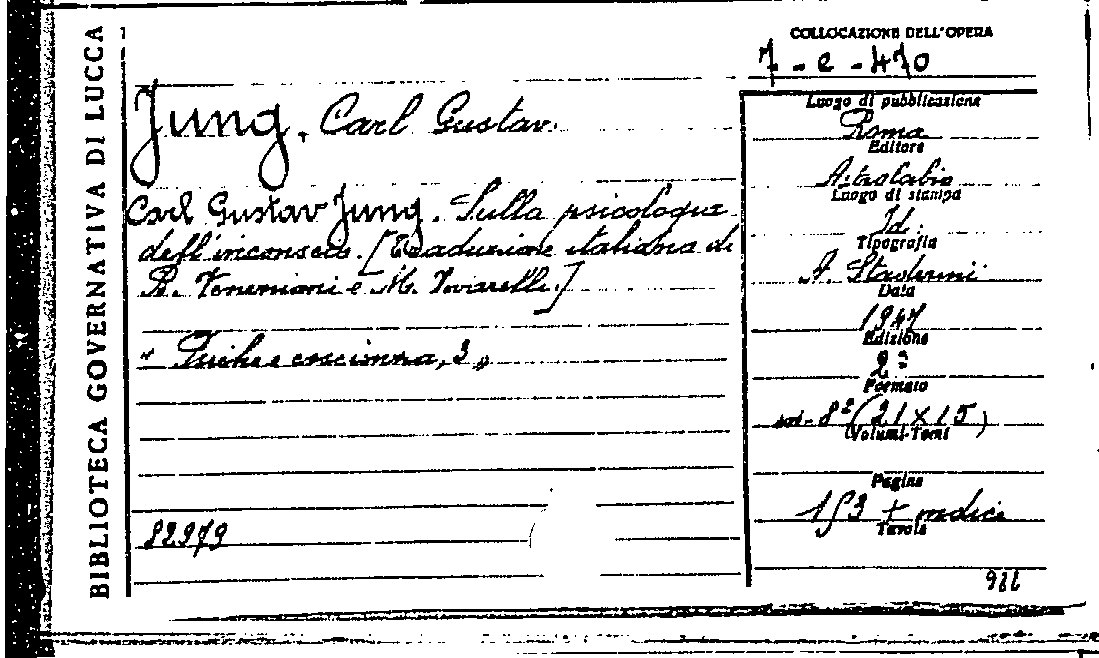 BIBLIOTECA GOVERNATIVA DI LUCCA
COLLOCAZIONE DELL'OPERA
7 - e - 470
Jung, Carl Gustav.
Carl Gustav Jung. Sulla psicologia
dell'inconscio. [Traduzione italiana di
B. e M.
« Psiche e coscienza, 3 »
82979
Luogo di pubblicazione
Roma
Editore
Astrolabio
Luogo di stampa
Id.
Tipografia
A. Staderini
Data
1947
Edizione
2ª
Formato
in-8º (21 x 15)
Volumi-Tomi
Pagine
153 + indici
Tavole